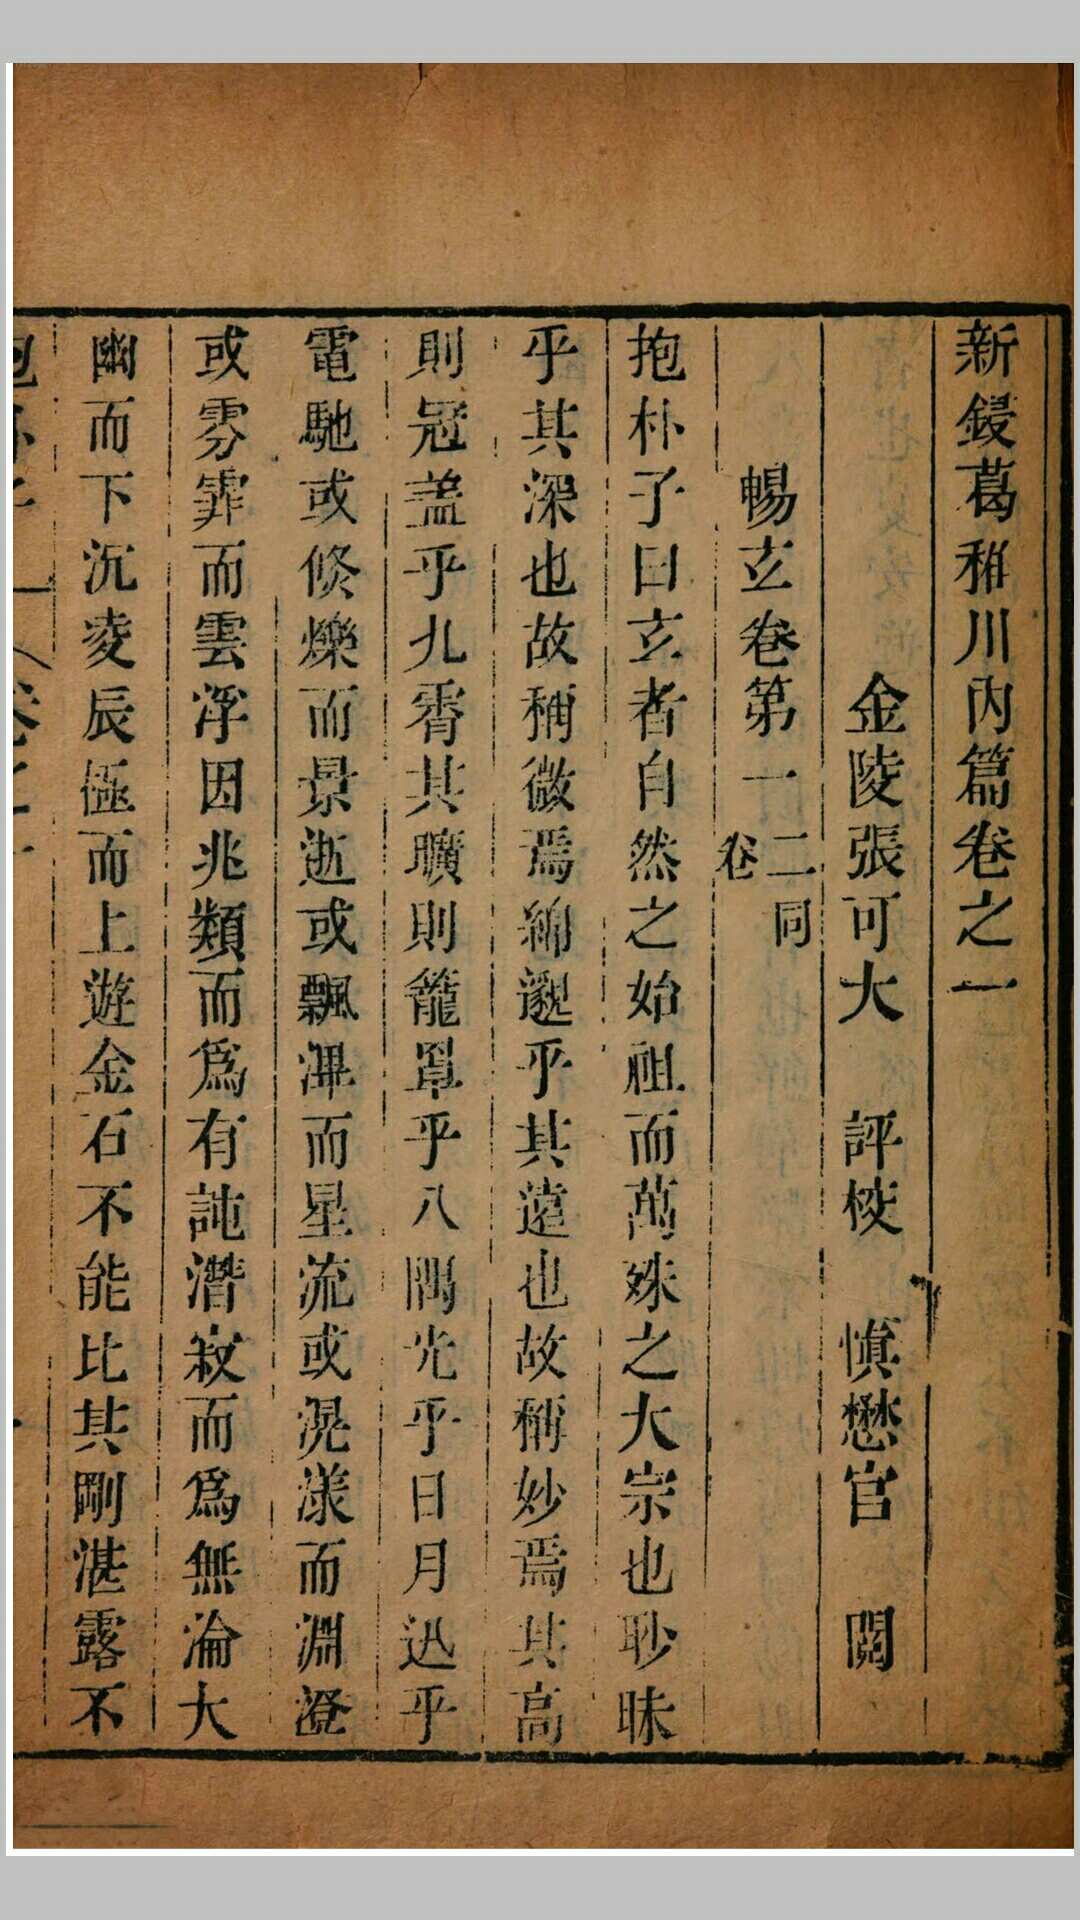 新鋟葛稚川內篇卷之一
金陵張可大 評校 慎懋官 閱
暢玄卷第一 二同卷
抱朴子曰玄者自然之始祖而萬殊之大宗也眇昧
乎其深也故稱微焉綿邈乎其遠也故稱妙焉其高
則冠盖乎九霄其曠則籠罩乎八隅光乎日月迅乎
電馳或倏爍而景逝或飄滭而星流或滉漾而淵澄
或雰霏而雲浮因兆類而爲有託潛寂而爲無淪大
幽而下沉凌辰極而上遊金石不能比其剛湛露不
抱朴子 卷之一